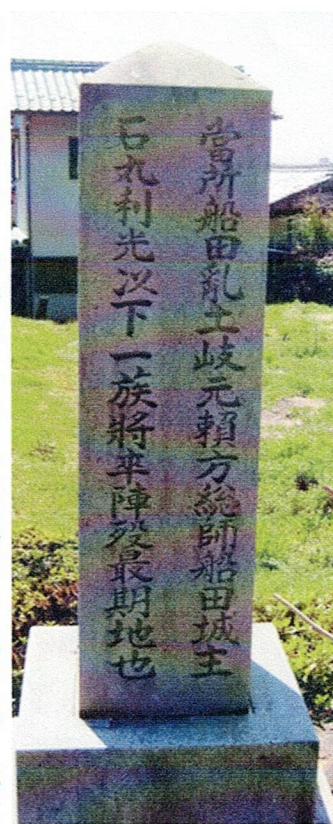 當所船田亂土岐元頼方総師船田城主
石丸利光以下一族將卒陣歿最期地也